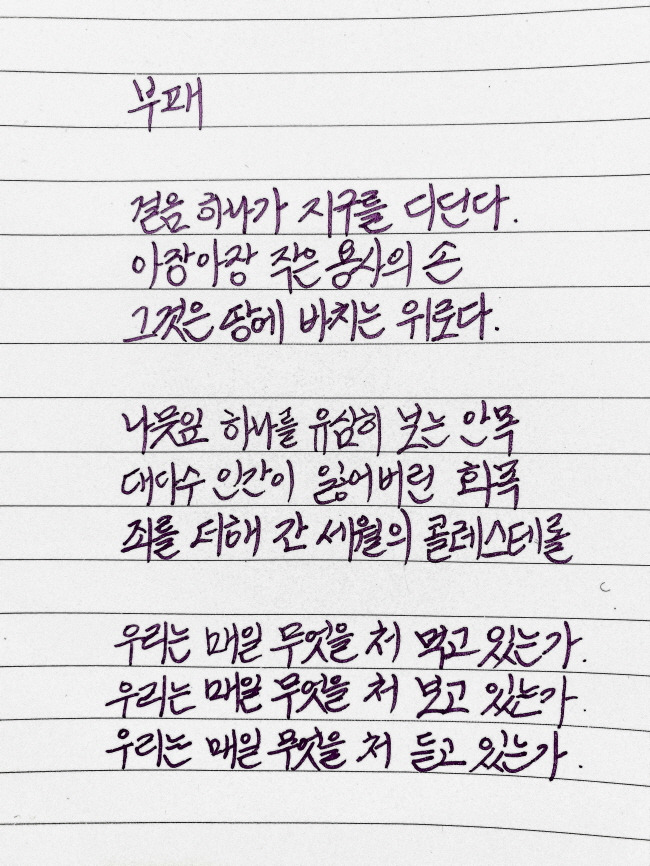 부패
걸음 하나가 지구를 디딘다.
아장아장 작은 용사의 손
그것은 땅에 바치는 위로다.
나뭇잎 하나를 유심히 보는 안목
대다수 인간이 잃어버린 화폭
죄를 더해 간 세월의 콜레스테롤
우리는 매일 무엇을 처 먹고 있는가.
우리는 매일 무엇을 처 보고 있는가.
우리는 매일 무엇을 처 듣고 있는가.